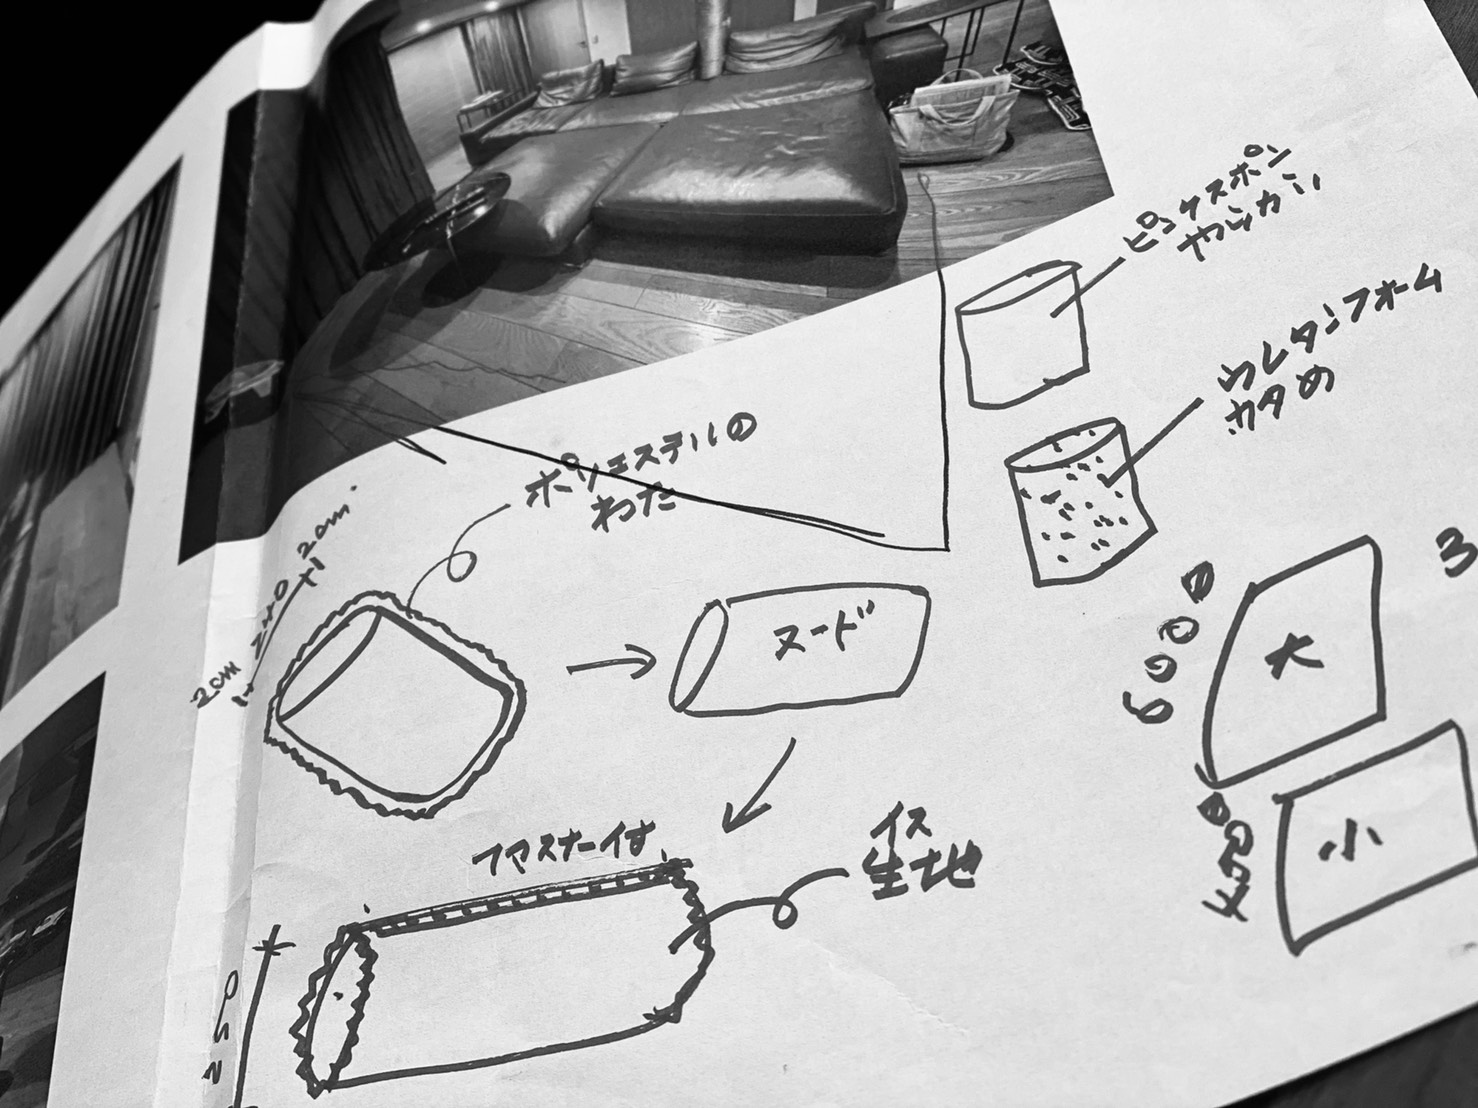 ピンクスポンジ
やわらかい
ウレタンフォーム
カタめ
ポリエステルの
わた
2cm
210
2cm
ヌード
ファスナー付
イス
生地
250
6000
大
小
3